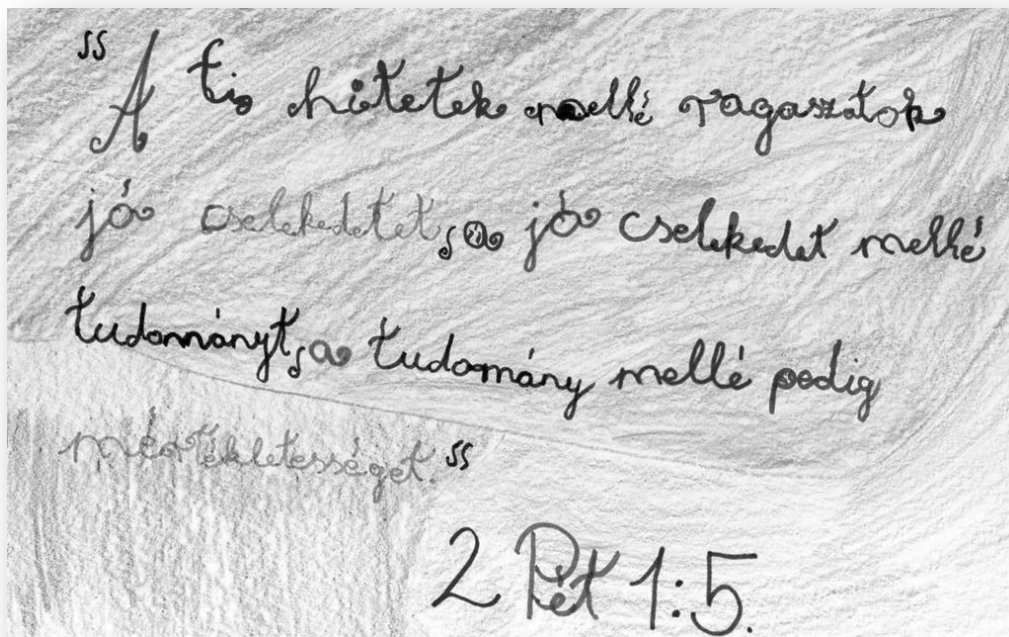 "A ti hitetek mellé ragasszatok
jó cselekedetet, a jó cselekedet mellé
tudományt, a tudomány mellé pedig
mértékletességet."
2 Pét 1:5.